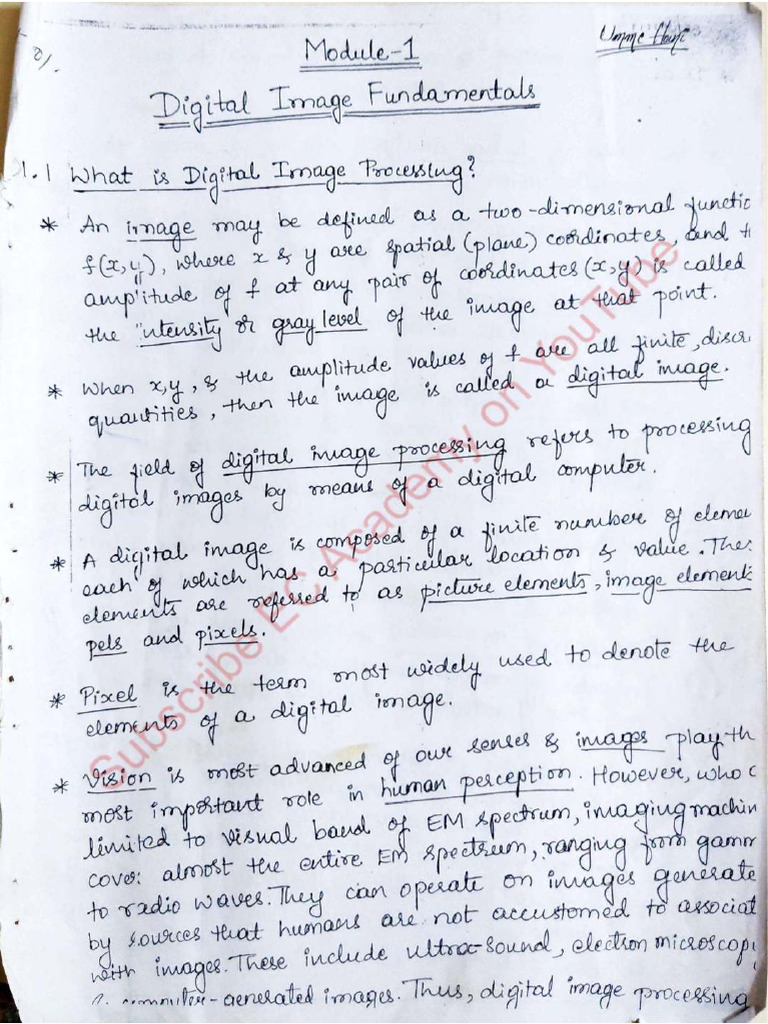 Module-1
Digital Image Fundamentals
1.1 What is Digital Image Processing?
* An image may be defined as a two-dimensional functio
f(x,y), where x & y are spatial (plane) coordinates, and t
amplitude of f at any pair of coordinates (x,y) is called
the intensity or gray level of the image at that point.
* When x,y, & the amplitude values of f are all finite, discr
quantities, then the image is called a digital image.
* The field of digital image processing refers to processing
digital images by means of a digital computer.
* A digital image is composed of a finite number of elemen
each of which has a particular location & value. Thes
elements are referred to as picture elements, image element
pels and pixels.
* Pixel is the term most widely used to denote the
elements of a digital image.
* Vision is most advanced of our senses & images play th
most important role in human perception. However, who
limited to visual band of EM spectrum, imaging machin
cover almost the entire EM spectrum, ranging from gamm
to radio waves. They can operate on images generate
by sources that humans are not accustomed to associat
with images. These include ultra-sound, electron microscop
& computer-generated images. Thus, digital image processing
Subscribe EC Academy on YouTube